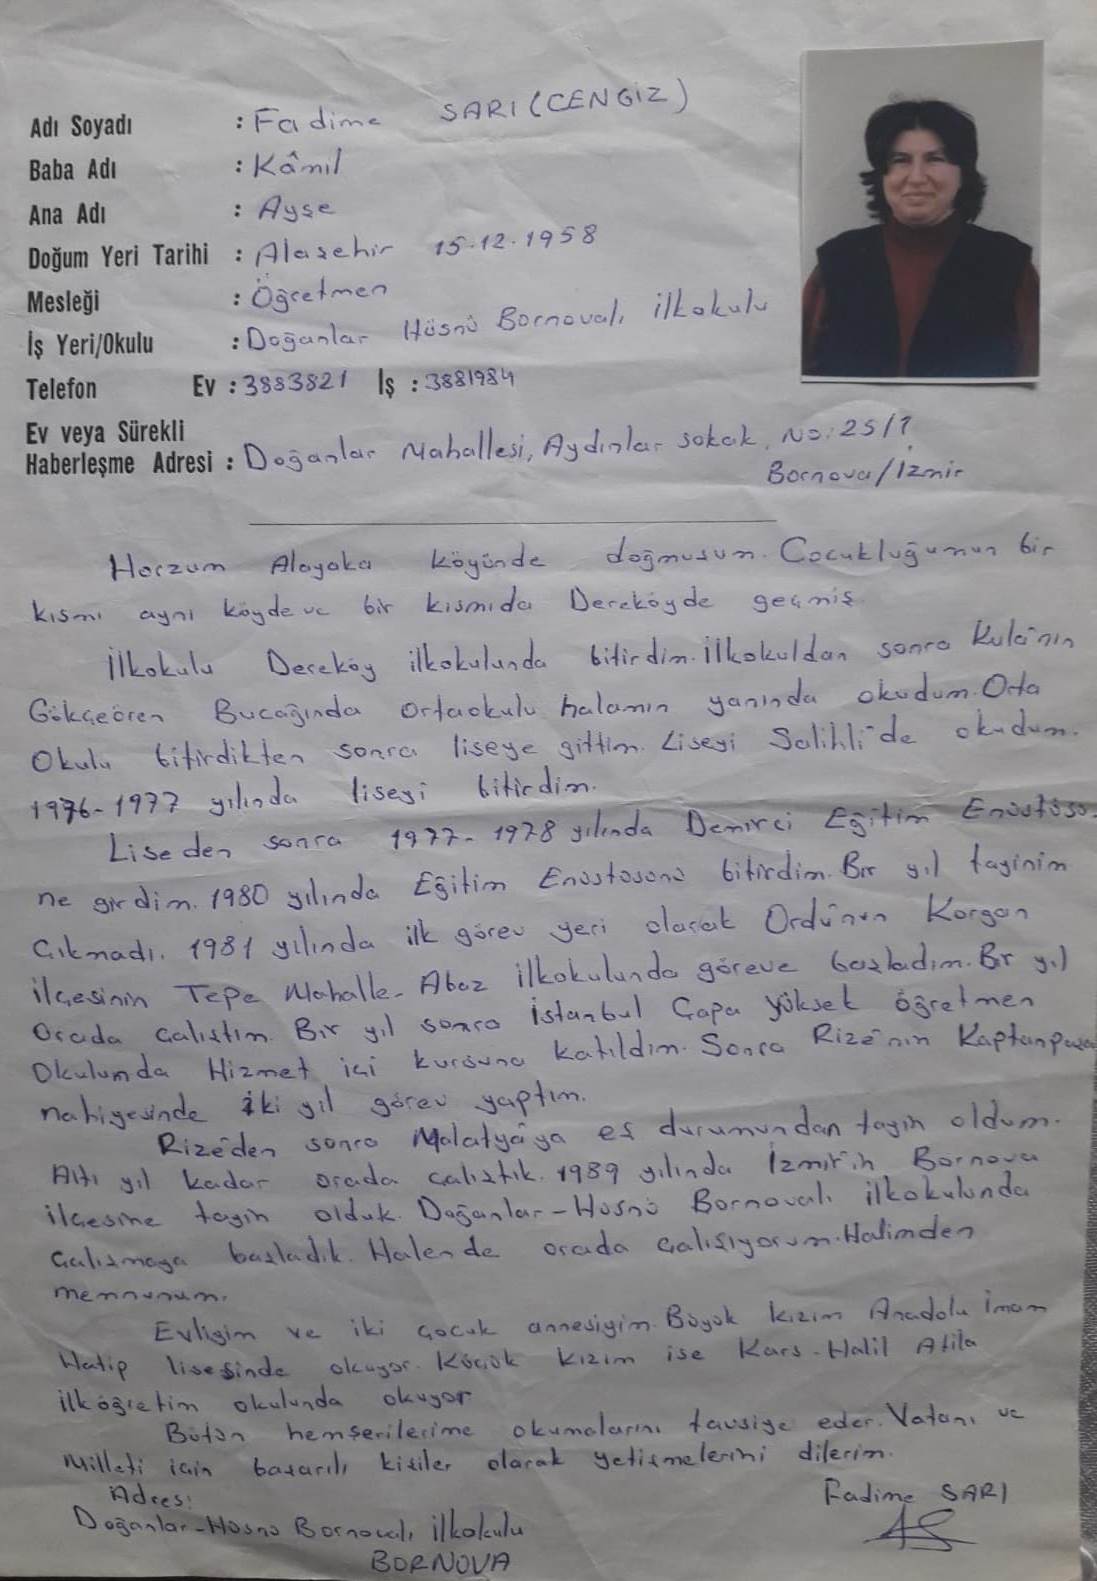 Adı Soyadı : Fadime SARI (CENGİZ)
Baba Adı : Kâmil
Ana Adı : Ayşe
Doğum Yeri Tarihi : Alaşehir 15.12.1958
Mesleği : Öğretmen
İş Yeri/Okulu : Doğanlar Hüsnü Bornovalı ilkokulu
Telefon Ev : 3883821 İş : 3881984
Ev veya Sürekli
Haberleşme Adresi : Doğanlar Mahallesi, Aydınlar sokak, No: 25/1
Bornova/İzmir
Horzum Alayaka köyünde doğmuşum. Çocukluğumun bir
kısmı aynı köyde ve bir kısmıda Dereköyde geçmiş.
İlkokulu Dereköy ilkokulunda bitirdim. İlkokuldan sonra Kula'nın
Gökçeören Bucağında ortaokulu halamın yanında okudum. Orta
Okulu bitirdikten sonra liseye gittim. Liseyi Salihli'de okudum.
1976-1977 yılında liseyi bitirdim.
Liseden sonra 1977-1978 yılında Demirci Eğitim Enüstüsü-
ne girdim. 1980 yılında Eğitim Enüstüsünü bitirdim. Bir yıl tayinim
çıkmadı. 1981 yılında ilk görev yeri olarak Ordu'nun Korgan
ilçesinin Tepe Mahalle-Abaz ilkokulunda göreve başladım. Bir yıl
orada çalıştım. Bir yıl sonra İstanbul Çapa Yüksek öğretmen
Okulunda Hizmet içi kursuna katıldım. Sonra Rize'nin Kaptanpaşa
nahiyesinde iki yıl görev yaptım.
Rize'den sonra Malatya'ya eş durumundan tayin oldum.
Altı yıl kadar orada çalıştık. 1989 yılında İzmir'in Bornova
ilçesine tayin olduk. Doğanlar-Hüsnü Bornovalı ilkokulunda
çalışmaya başladık. Halende orada çalışıyorum. Halimden
memnunum.
Evliyim ve iki çocuk annesiyim. Büyük kızım Anadolu İmam
Hatip lisesinde okuyor. Küçük kızım ise Kars-Halil Atila
ilköğretim okulunda okuyor
Bütün hemşerilerime okumalarını tavsiye eder. Vatanı ve
Milleti için başarılı kişiler olarak yetişmelerini dilerim.
Fadime SARI
Adres:
Doğanlar-Hüsnü Bornovalı ilkokulu
BORNOVA